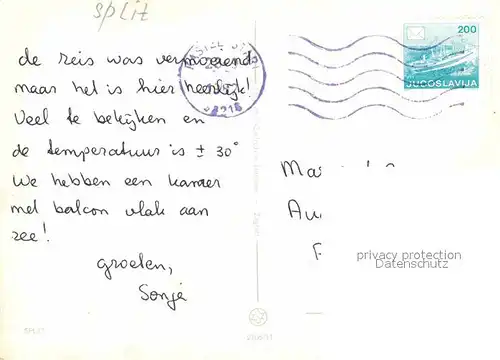 split
200
JUGOSLAVIJA
de reis was vermoeiend
maar het is hier heerlijk!
Veel te bekijken en
de temperatuur is ± 30°
We hebben een kamer
met balcon vlak aan
zee!
groeten,
Sonja
privacy protection
Datenschutz